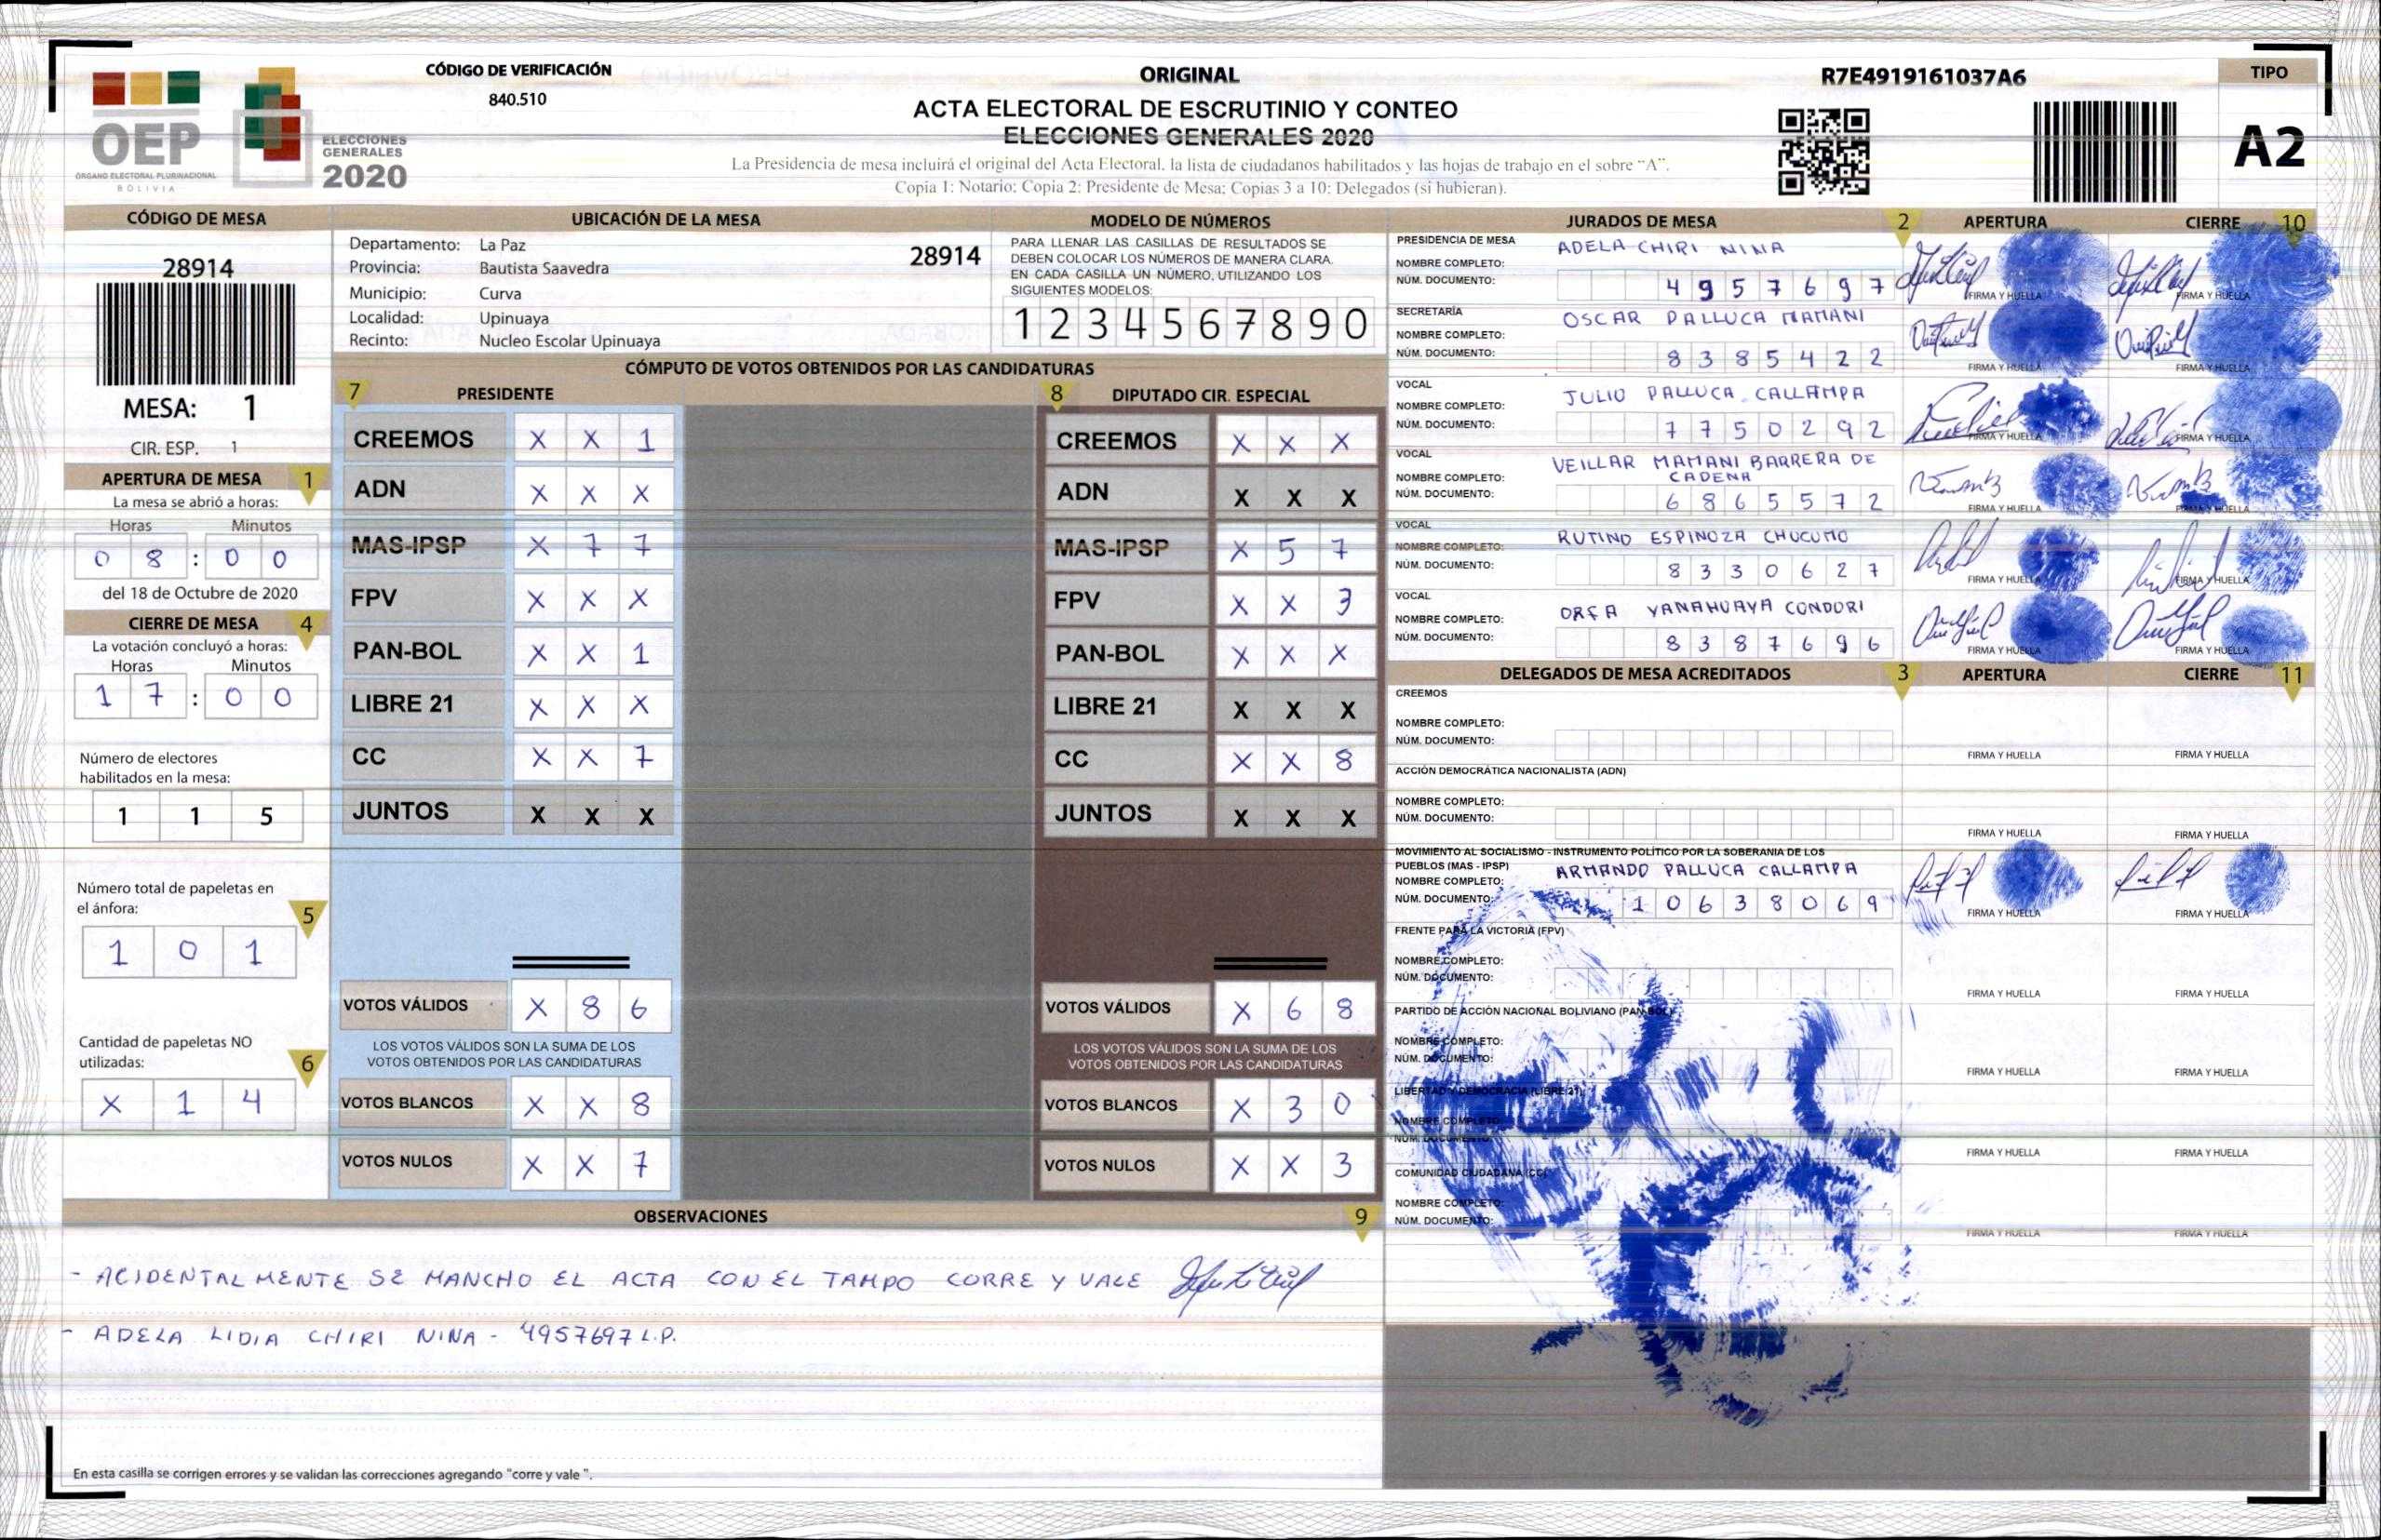 CÓDIGO DE VERIFICACIÓN
840.510
OEP
ÓRGANO ELECTORAL PLURINACIONAL
BOLIVIA
ELECCIONES
GENERALES
2020
ORIGINAL
ACTA ELECTORAL DE ESCRUTINIO Y CONTEO
ELECCIONES GENERALES 2020
La Presidencia de mesa incluirá el original del Acta Electoral, la lista de ciudadanos habilitados y las hojas de trabajo en el sobre “A”.
Copia 1: Notario; Copia 2: Presidente de Mesa; Copias 3 a 10: Delegados (si hubieran).
R7E4919161037A6
TIPO
A2
CÓDIGO DE MESA
28914
MESA: 1
CIR. ESP. 1
APERTURA DE MESA 1
La mesa se abrió a horas:
Horas Minutos
0 8 : 0 0
del 18 de Octubre de 2020
CIERRE DE MESA 4
La votación concluyó a horas:
Horas Minutos
1 7 : 0 0
Número de electores
habilitados en la mesa:
1 1 5
Número total de papeletas en
el ánfora:
5
1 0 1
Cantidad de papeletas NO
utilizadas:
6
X 1 4
UBICACIÓN DE LA MESA
Departamento: La Paz
28914
Provincia: Bautista Saavedra
Municipio: Curva
Localidad: Upinuaya
Recinto: Nucleo Escolar Upinuaya
MODELO DE NÚMEROS
PARA LLENAR LAS CASILLAS DE RESULTADOS SE
DEBEN COLOCAR LOS NÚMEROS DE MANERA CLARA.
EN CADA CASILLA UN NÚMERO, UTILIZANDO LOS
SIGUIENTES MODELOS:
1 2 3 4 5 6 7 8 9 0
CÓMPUTO DE VOTOS OBTENIDOS POR LAS CANDIDATURAS
7 PRESIDENTE
CREEMOS X X 1
ADN X X X
MAS-IPSP X 7 7
FPV X X X
PAN-BOL X X 1
LIBRE 21 X X X
CC X X 7
JUNTOS X X X
VOTOS VÁLIDOS X 8 6
LOS VOTOS VÁLIDOS SON LA SUMA DE LOS
VOTOS OBTENIDOS POR LAS CANDIDATURAS
VOTOS BLANCOS X X 8
VOTOS NULOS X X 7
8 DIPUTADO CIR. ESPECIAL
CREEMOS X X X
ADN X X X
MAS-IPSP X 5 7
FPV X X 3
PAN-BOL X X X
LIBRE 21 X X X
CC X X 8
JUNTOS X X X
VOTOS VÁLIDOS X 6 8
LOS VOTOS VÁLIDOS SON LA SUMA DE LOS
VOTOS OBTENIDOS POR LAS CANDIDATURAS
VOTOS BLANCOS X 3 0
VOTOS NULOS X X 3
JURADOS DE MESA 2 APERTURA CIERRE 10
PRESIDENCIA DE MESA
ADELA CHIRI NINA
NOMBRE COMPLETO:
NÚM. DOCUMENTO: 4 9 5 7 6 9 7
FIRMA Y HUELLA FIRMA Y HUELLA
SECRETARÍA
OSCAR PALLUCA MAMANI
NOMBRE COMPLETO:
NÚM. DOCUMENTO: 8 3 8 5 4 2 2
FIRMA Y HUELLA FIRMA Y HUELLA
VOCAL
JULIO PALLUCA CALLAMPA
NOMBRE COMPLETO:
NÚM. DOCUMENTO: 7 7 5 0 2 9 2
FIRMA Y HUELLA FIRMA Y HUELLA
VOCAL
VEILLAR MAMANI BARRERA DE
CADENA
NOMBRE COMPLETO:
NÚM. DOCUMENTO: 6 8 6 5 5 7 2
FIRMA Y HUELLA FIRMA Y HUELLA
VOCAL
RUTINO ESPINOZA CHUCUMO
NOMBRE COMPLETO:
NÚM. DOCUMENTO: 8 3 3 0 6 2 7
FIRMA Y HUELLA FIRMA Y HUELLA
VOCAL
ORFA YANAHUAYA CONDORI
NOMBRE COMPLETO:
NÚM. DOCUMENTO: 8 3 8 7 6 9 6
FIRMA Y HUELLA FIRMA Y HUELLA
DELEGADOS DE MESA ACREDITADOS 3 APERTURA CIERRE 11
CREEMOS
NOMBRE COMPLETO:
NÚM. DOCUMENTO:
FIRMA Y HUELLA FIRMA Y HUELLA
ACCIÓN DEMOCRÁTICA NACIONALISTA (ADN)
NOMBRE COMPLETO:
NÚM. DOCUMENTO:
FIRMA Y HUELLA FIRMA Y HUELLA
MOVIMIENTO AL SOCIALISMO - INSTRUMENTO POLÍTICO POR LA SOBERANIA DE LOS
PUEBLOS (MAS - IPSP)
ARMANDO PALLUCA CALLAMPA
NOMBRE COMPLETO:
NÚM. DOCUMENTO: 1 0 6 3 8 0 6 9
FIRMA Y HUELLA FIRMA Y HUELLA
FRENTE PARA LA VICTORIA (FPV)
NOMBRE COMPLETO:
NÚM. DOCUMENTO:
FIRMA Y HUELLA FIRMA Y HUELLA
PARTIDO DE ACCIÓN NACIONAL BOLIVIANO (PAN-BOL)
NOMBRE COMPLETO:
NÚM. DOCUMENTO:
FIRMA Y HUELLA FIRMA Y HUELLA
LIBERTAD Y DEMOCRACIA (LIBRE 21)
NOMBRE COMPLETO:
NÚM. DOCUMENTO:
FIRMA Y HUELLA FIRMA Y HUELLA
COMUNIDAD CIUDADANA (CC)
NOMBRE COMPLETO:
NÚM. DOCUMENTO:
FIRMA Y HUELLA FIRMA Y HUELLA
OBSERVACIONES 9
- ACIDENTALMENTE SE MANCHO EL ACTA CON EL TAMPO CORRE Y VALE
- ADELA LIDIA CHIRI NINA - 4957697 L.P.
En esta casilla se corrigen errores y se validan las correcciones agregando "corre y vale ".